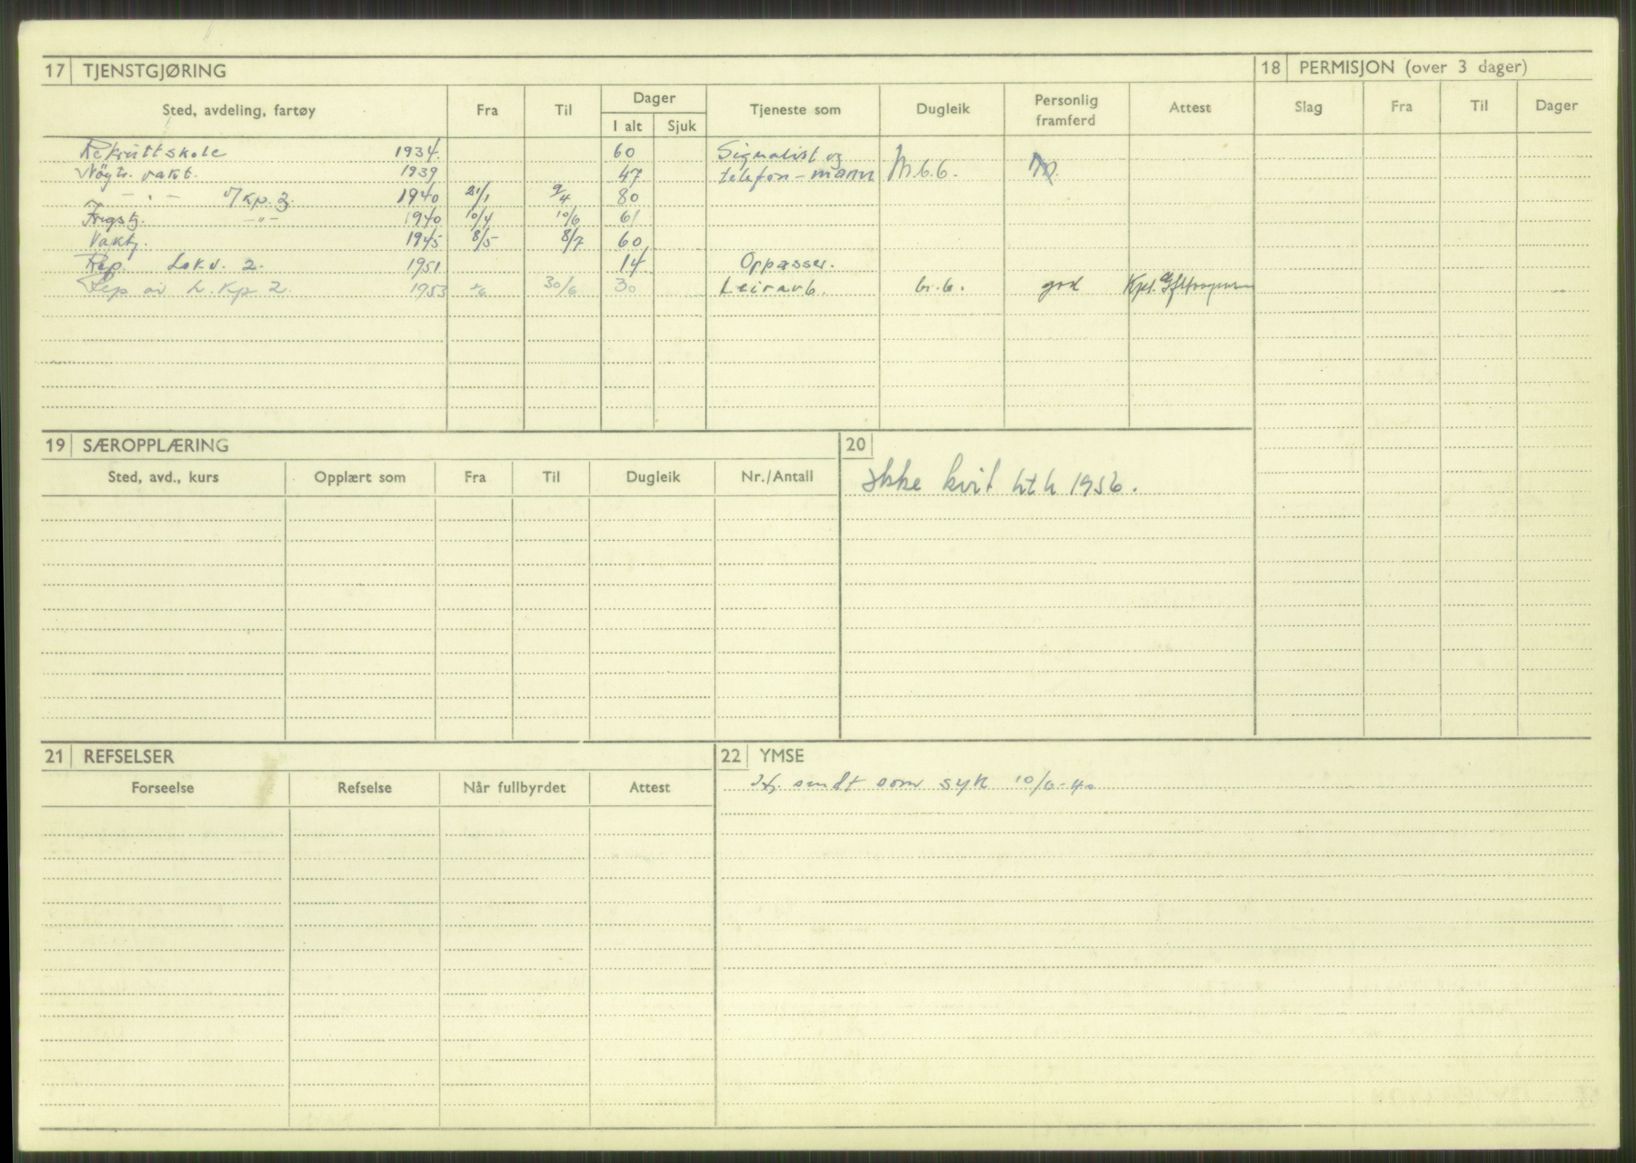 17 TJENSTGJØRING
18 PERMISJON (over 3 dager)
Sted, avdeling, fartøy Fra Til Dager I alt Sjuk Tjeneste som Dugleik Personlig framferd Attest
Slag Fra Til Dager
Rekruttskole 1934. 60 Signalist og
Nøytr. vakt. 1939 47 telefon-mann M.b.b.
- " - v/Kp. 2. 1940 21/1 9/4 80
Krigstj. -"- 1940 10/4 10/6 61
Vaktj. 1945 8/5 8/7 60
Rep. Lok.v. 2. 1951 14 Oppasser.
Rep av L.Kp 2. 1953 30/6 30 Leirarb. br.b. god Kpt.
19 SÆROPPLÆRING
Sted, avd., kurs Opplært som Fra Til Dugleik Nr./Antall
20
Ikke kvit 1956.
21 REFSELSER
Forseelse Refselse Når fullbyrdet Attest
22 YMSE
sendt som syk 10/6-40